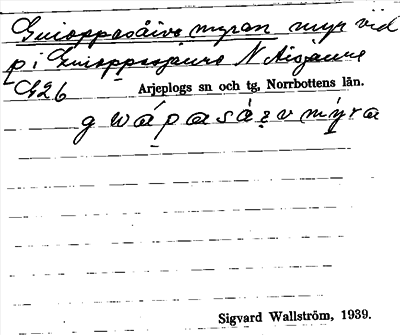 Guioppasåive myran myr vid
p i Guioppasjaure N Aisjaure
G26 Arjeplogs sn och tg, Norrbottens län.
g w á p a s á i v m ý r a
Sigvard Wallström, 1939.